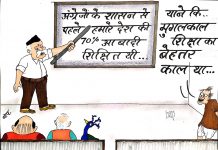 अंग्रेजों के शासन से
पहले हमारे देश की
70% आबादी
शिक्षित थी...
याने कि..
मुगलकाल
शिक्षा का
बेहतर
काल था...